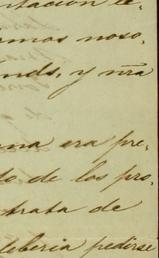 ntacion te-
amos noso-
nds, y nra
una era pre-
to de los pro-
trata de
leberia pedirse